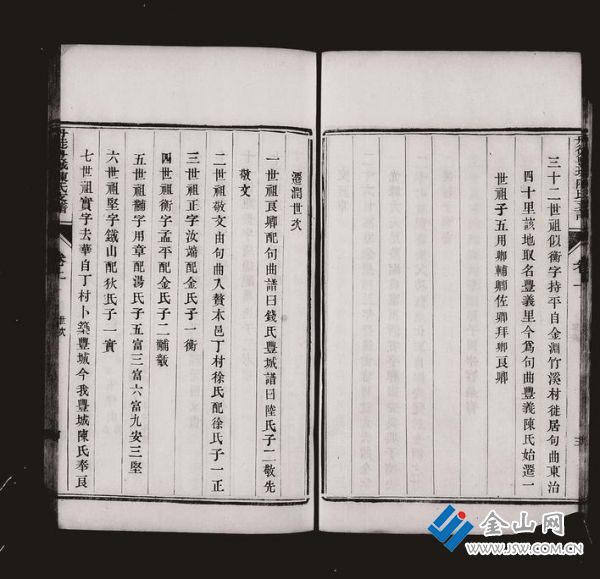 三十二世祖似衡字持平自金淵竹溪村徙居句曲東治
四十里該地取名豐義里今爲句曲豐義陳氏始遷一
世祖子五用卿輔卿佐卿拜卿良卿
卷一
遷潤世次
一世祖良卿配句曲譜曰錢氏豐城譜曰陸氏子二敬先
敬文
二世祖敬文由句曲入贅本邑丁村徐氏配徐氏子一正
三世祖正字汝端配金氏子一衡
四世祖衡字孟平配金氏子二黼黻
五世祖黼字用章配湯氏子五富三富六富九安三堅
六世祖堅字鐵山配狄氏子一實
七世祖實字去華自丁村卜築豐城今我豐城陳氏奉良
世次
金山网
WWW.JSW.COM.CN